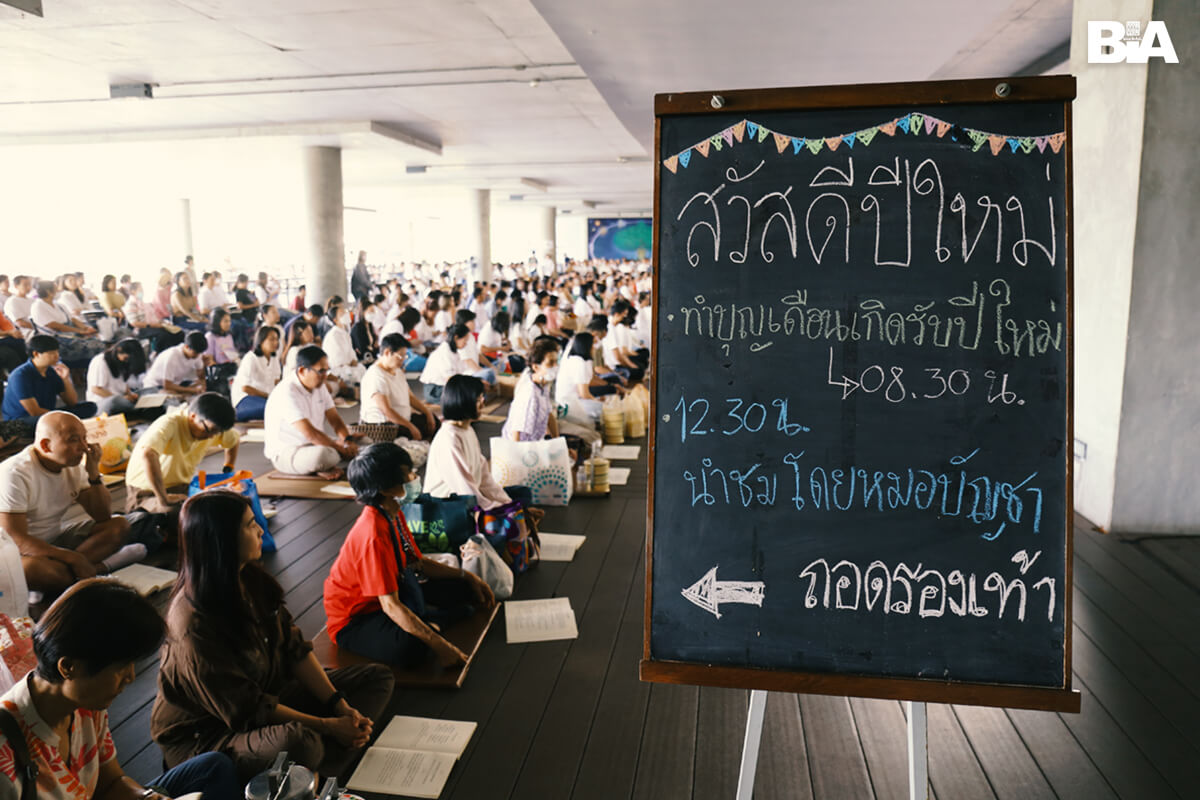 BIA
สวัสดีปีใหม่
• ทำบุญเดือนเกิดรับปีใหม่
↳ 08.30 น.
• 12.30 น.
นำชม โดยหมอบัญชา
← ถอดรองเท้า